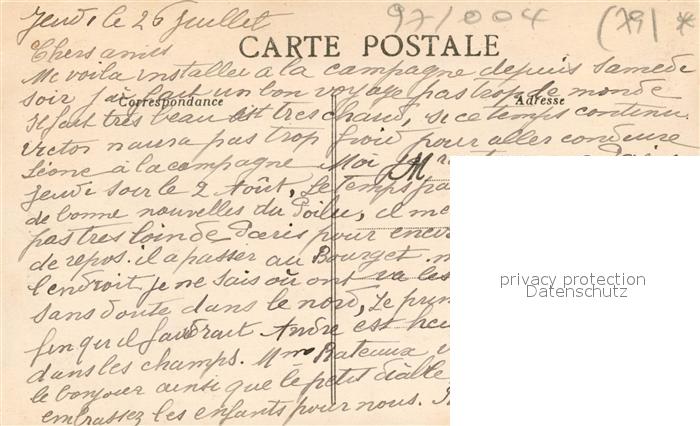 Jeudi le 26 Juillet
971004 (79) *
Chers amis
CARTE POSTALE
Me voila installer a la campagne depuis samedi
soir j'ai fait un bon voyage pas trop de monde
Correspondance
Adresse
Il fait très beau et tres chaud, si ce temps continu
Victor naura pas trop froid pour aller conduire
Léone a la campagne Moi
Jeudi soir le 2 Août, Le temps pa
de bonne nouvelles du Poilu, il me
pas tres loin de Paris pour encor
de repos. il a passer au Bourget
l'endroit je ne sais où ont va les
sans doute dans le nord, Le
fin qu'il faudrait André est heu
dans les champs. Mme Rateaux
le bonjour ainsi que le petit diable
embrassez les enfants pour nous.
privacy protection
Datenschutz